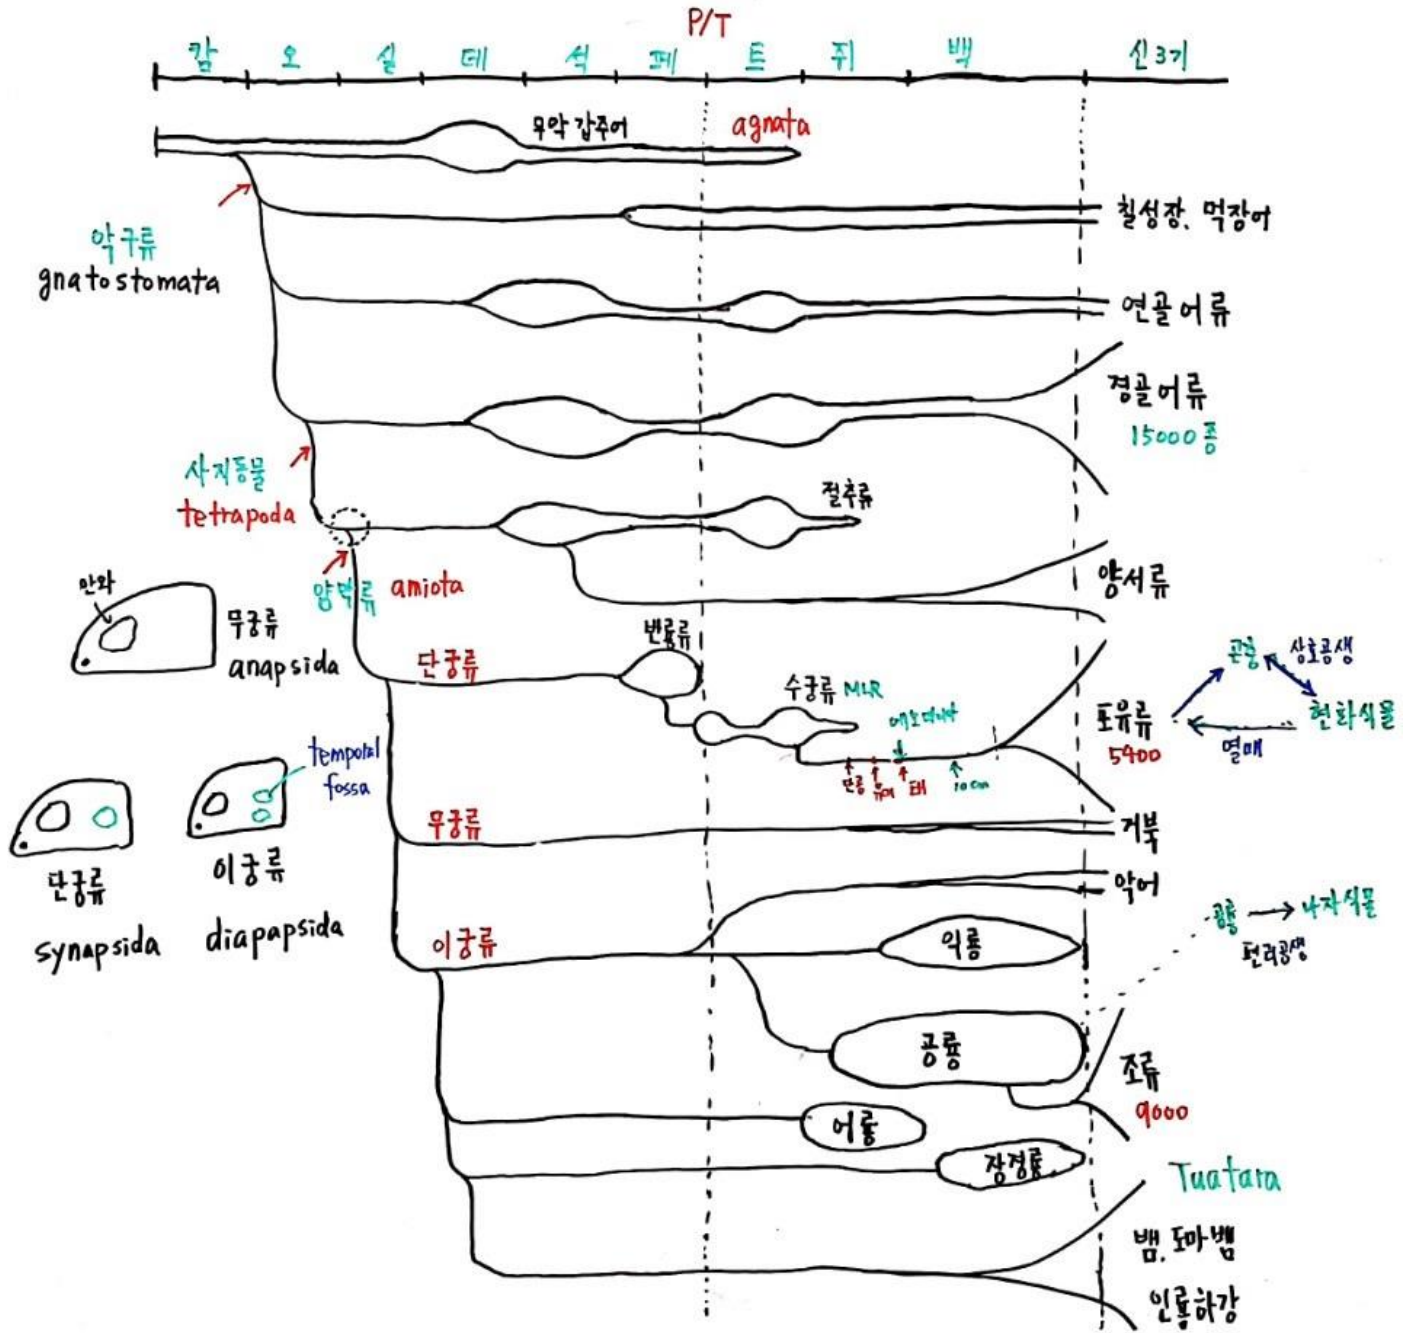 P/T
캄 오 실 데 석 페 트 쥐 백 신3기
무악 갑주어 agnata
칠성장, 먹장어
악구류
gnatostomata
연골어류
경골어류
15000종
사지동물
tetrapoda
절추류
양막류 amiota
양서류
안와
무궁류
anapsida
단궁류
반룡류
수궁류 MLR
에오마이아
단공 유대 태 10cm
포유류
5400
곤충 상호공생
현화식물
열매
temporal
fossa
단궁류
synapsida
이궁류
diapapsida
무궁류
거북
악어
이궁류
익룡
공룡 나자식물
편리공생
공룡
조류
9000
어룡
장경룡
Tuatara
뱀, 도마뱀
인룡하강